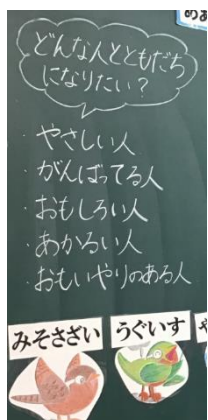 めあ
どんな人とともだち
になりたい？
・やさしい人
・がんばってる人
・おもしろい人
・あかるい人
・おもいやりのある人
みそさざい
うぐいす
や